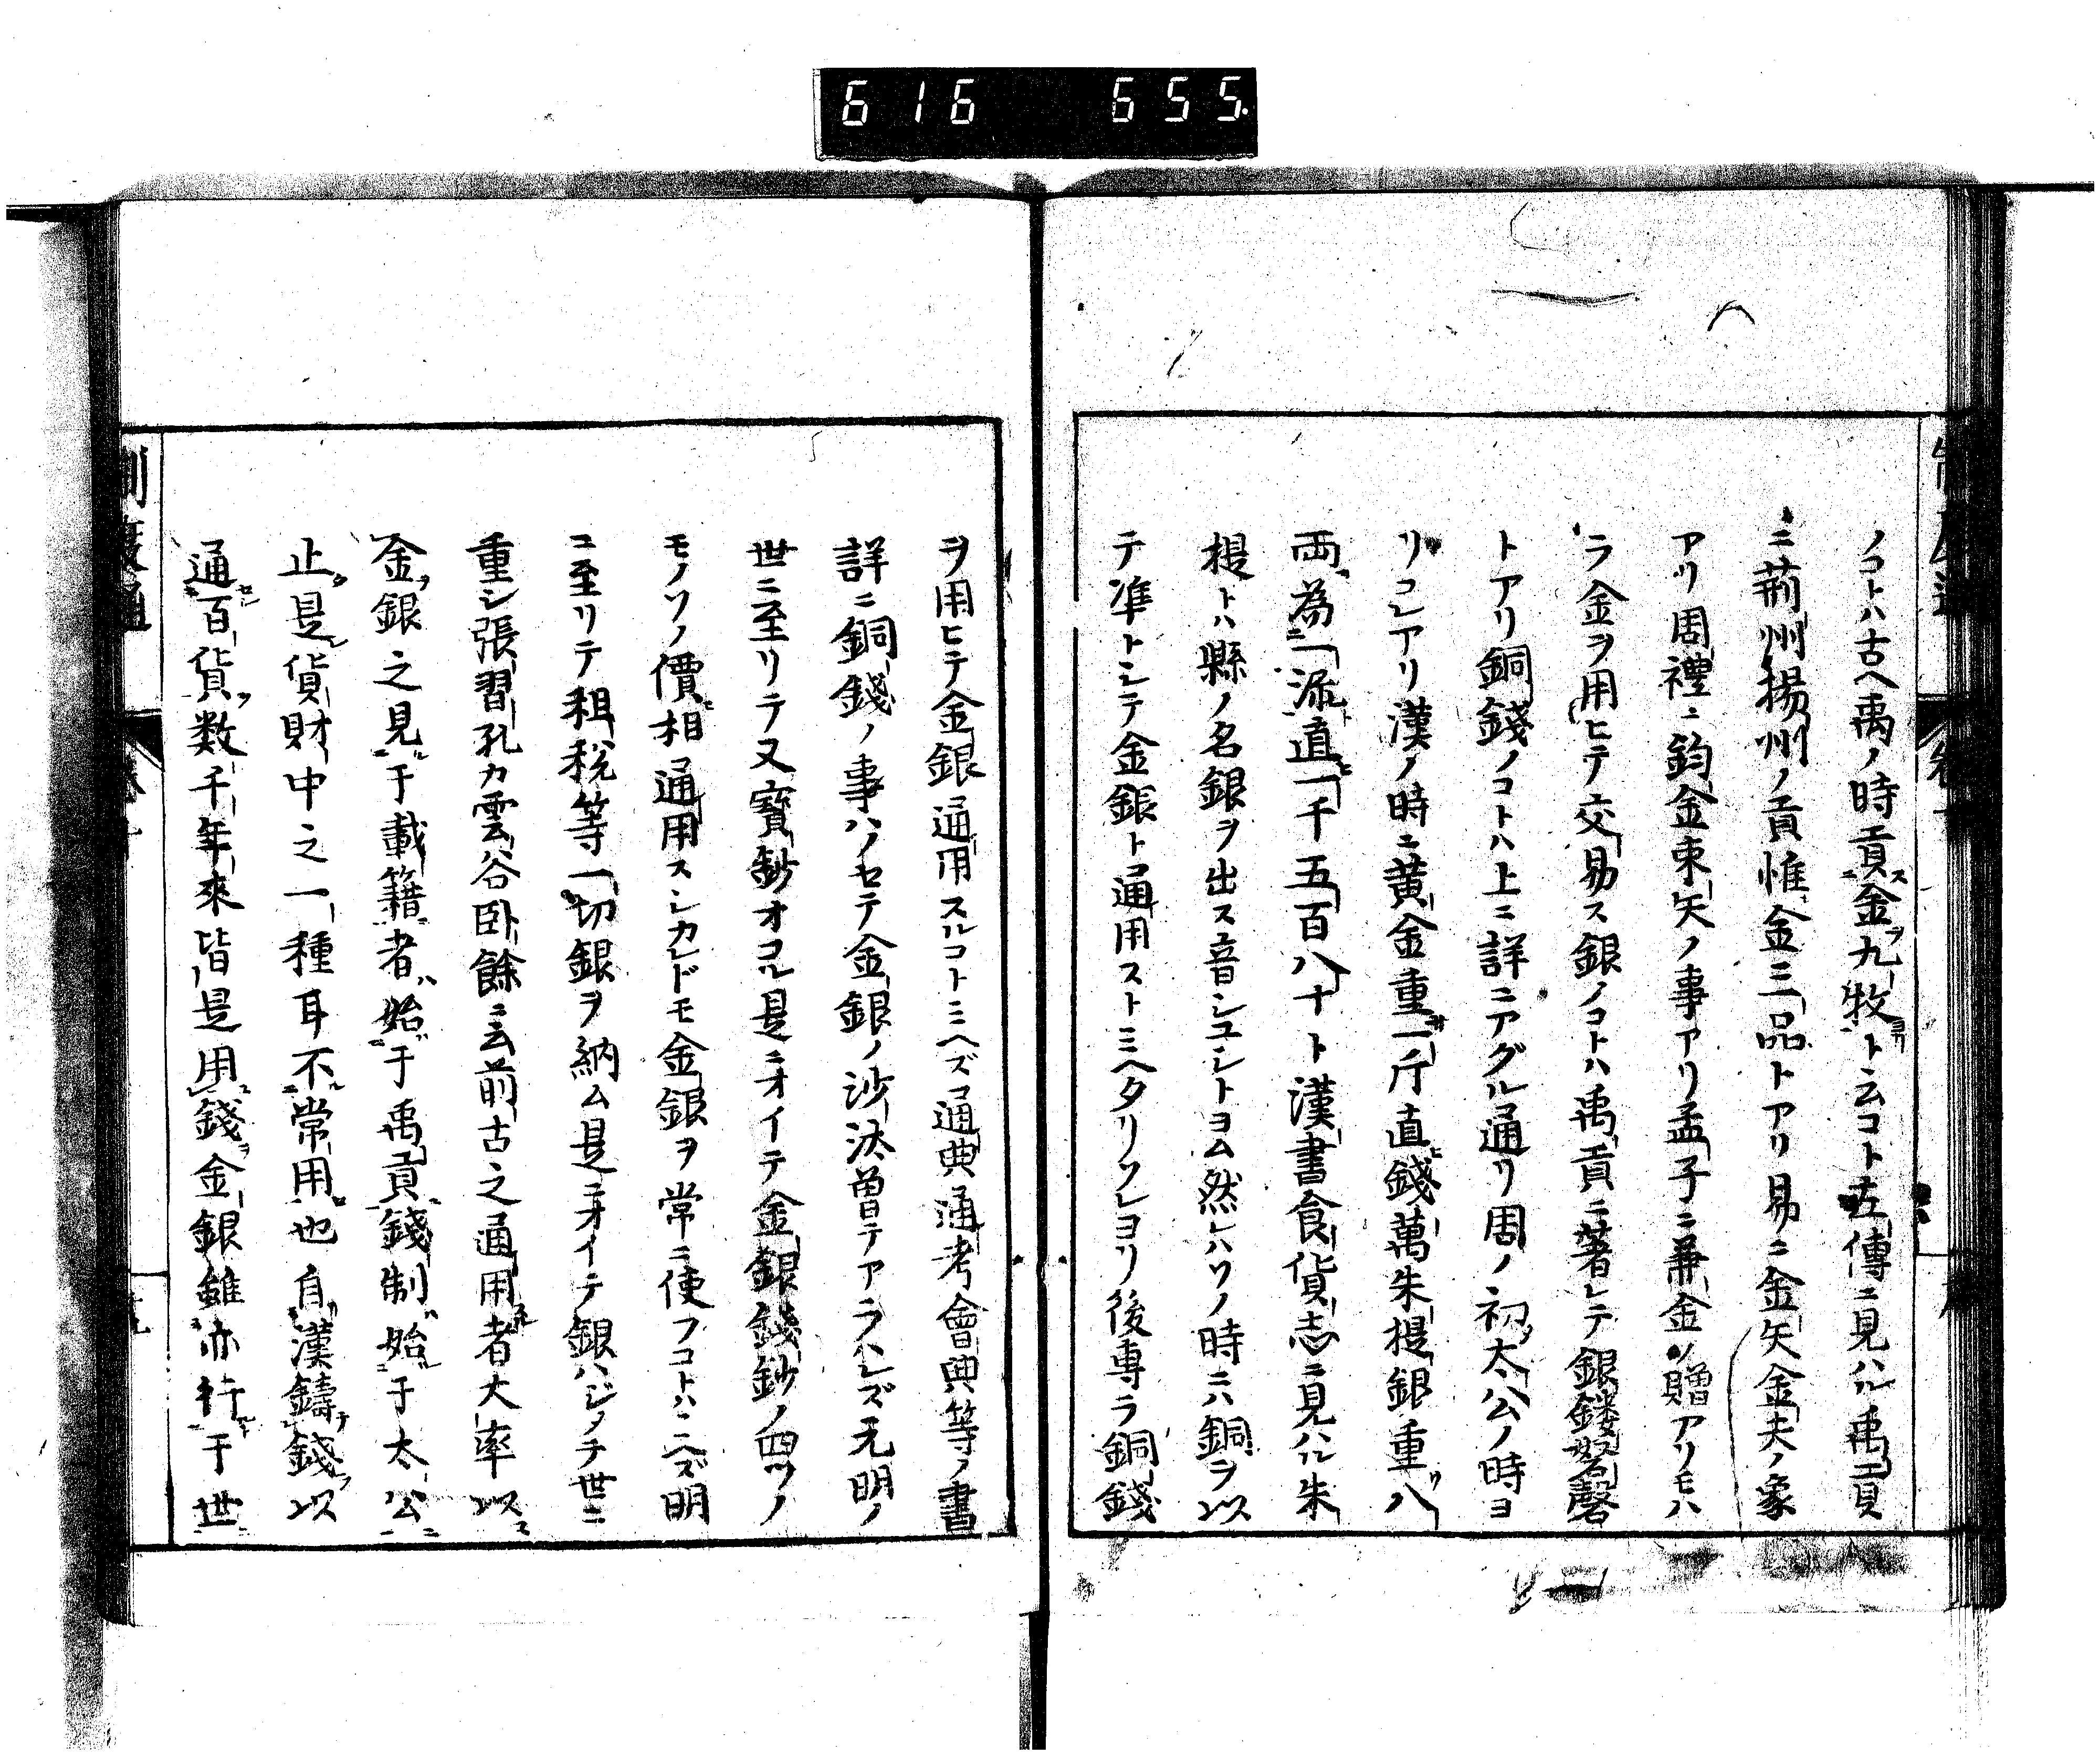 616 655
ノコトハ古ヘ禹ノ時貢金九牧ト云コト左傳ニ見ハル禹貢
ニ荊州揚州ノ貢惟金三品トアリ易ニ金矢金夫ノ象
アリ周禮ニ鈞金束矢ノ事アリ孟子ニ兼金ノ贈アリモハ
ラ金ヲ用ヒテ交易ス銀ノコトハ禹貢ニ著シテ銀鏤砮磬
トアリ銅錢ノコトハ上ニ詳ニアグル通リ周ノ初太公ノ時ヨ
リコレアリ漢ノ時ニ黄金重一斤直錢萬朱提銀重八
両為一流直一千五百八十ト漢書食貨志ニ見ハル朱
提トハ縣ノ名銀ヲ出ス音シユシトヨム然レハソノ時ニハ銅ヲ以
テ準トシテ金銀ト通用ストミヘタリソレヨリ後専ラ銅錢
ヲ用ヒテ金銀通用スルコトミヘズ通典通考會典等ノ書
詳ニ銅錢ノ事ハノセテ金銀ノ沙汰曽テアラハレズ元明ノ
世ニ至リテ又寳鈔オコル是ニオイテ金銀錢鈔ノ四ツノ
モノソノ價相通用スシカレドモ金銀ヲ常ニ使フコトハミヘズ明
ニ至リテ租税等一切銀ヲ納ム是ニオイテ銀ハジメテ世ニ
重シ張習孔カ雲谷卧餘ニ云前古之通用者大率以
金銀之見于載籍者始于禹貢錢制始于太公
止是貨財中之一種耳不常用也自漢鑄錢以
通百貨数千年來皆是用錢金銀雖亦行于世
制度通